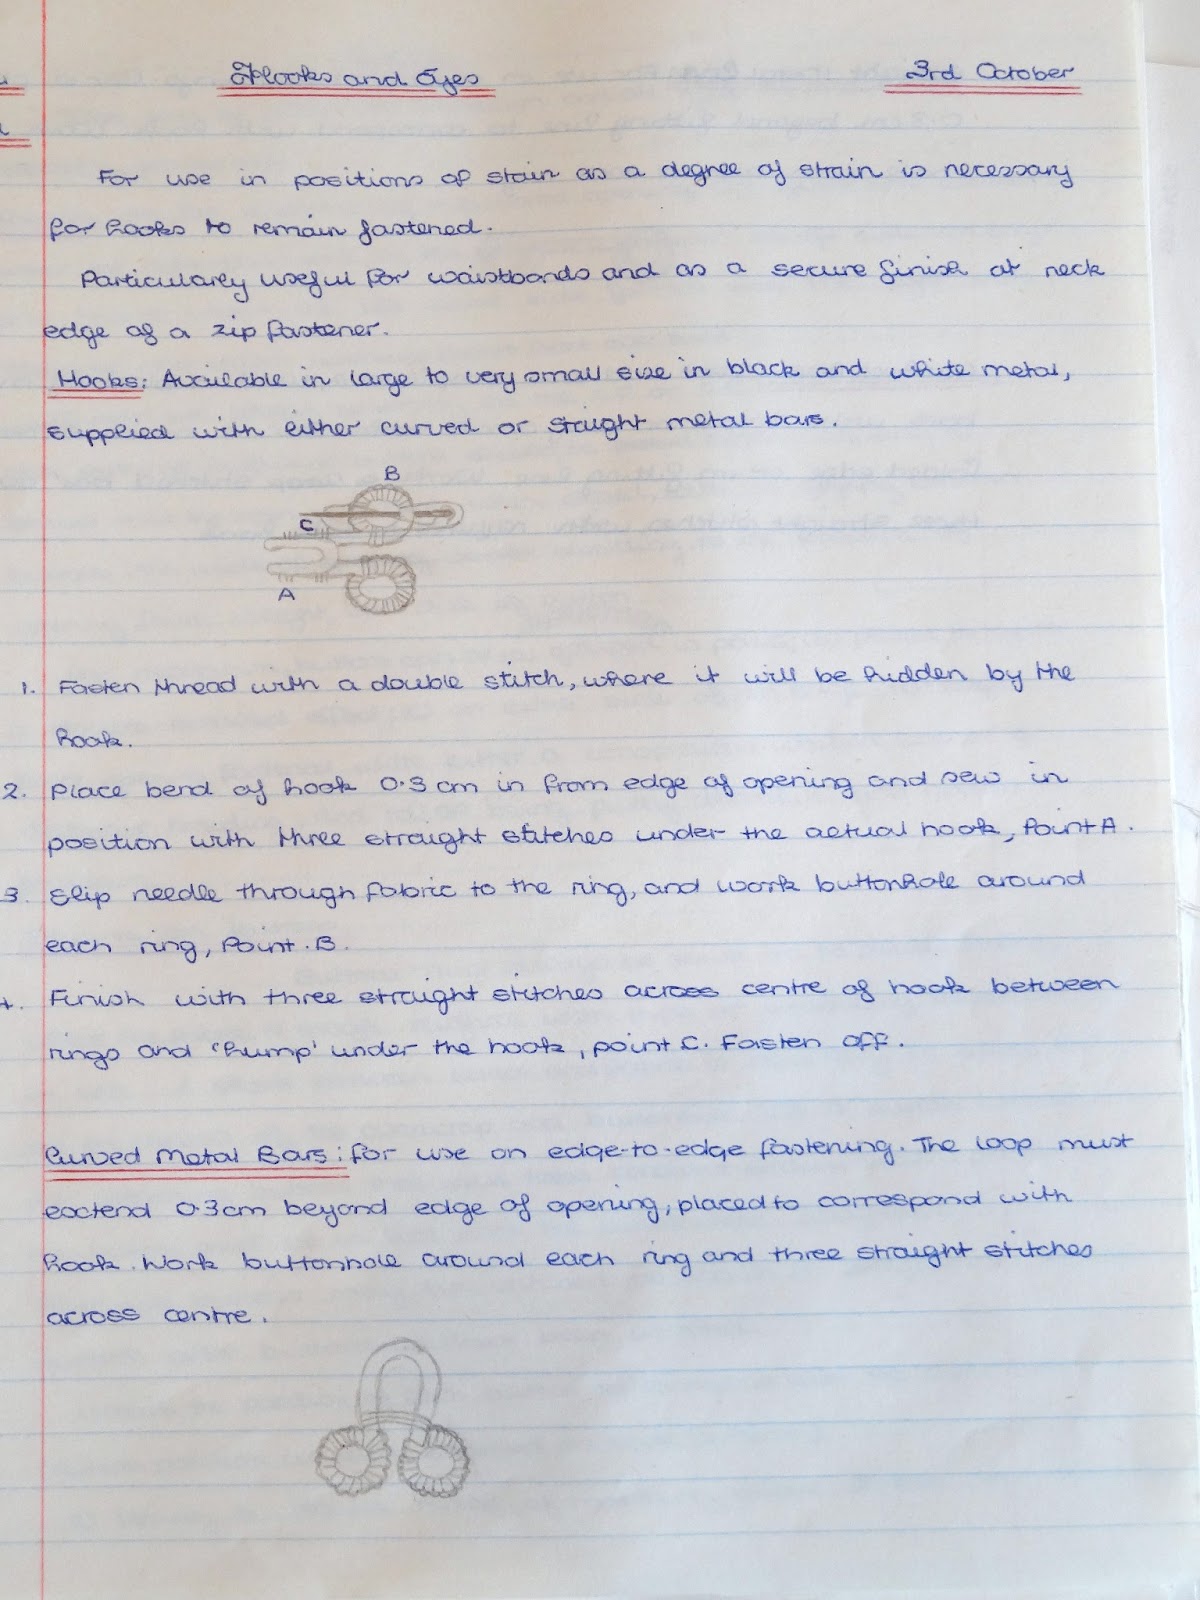 Hooks and Eyes
3rd October
For use in positions of stain as a degree of strain is necessary
for hooks to remain fastened.
Particularly useful for waistbands and as a secure finish at neck
edge of a zip fastener.
Hooks: Available in large to very small size in black and white metal,
supplied with either curved or straight metal bars.
B
C
A
1. Fasten thread with a double stitch, where it will be hidden by the
hook.
2. Place bend of hook 0.3 cm in from edge of opening and sew in
position with three straight stitches under the actual hook, Point A.
3. Slip needle through fabric to the ring, and work buttonhole around
each ring, Point.B.
4. Finish with three straight stitches across centre of hook between
rings and 'hump' under the hook, point C. Fasten off.
Curved Metal Bars: for use on edge-to-edge fastening. The loop must
extend 0.3cm beyond edge of opening, placed to correspond with
hook. Work buttonhole around each ring and three straight stitches
across centre.